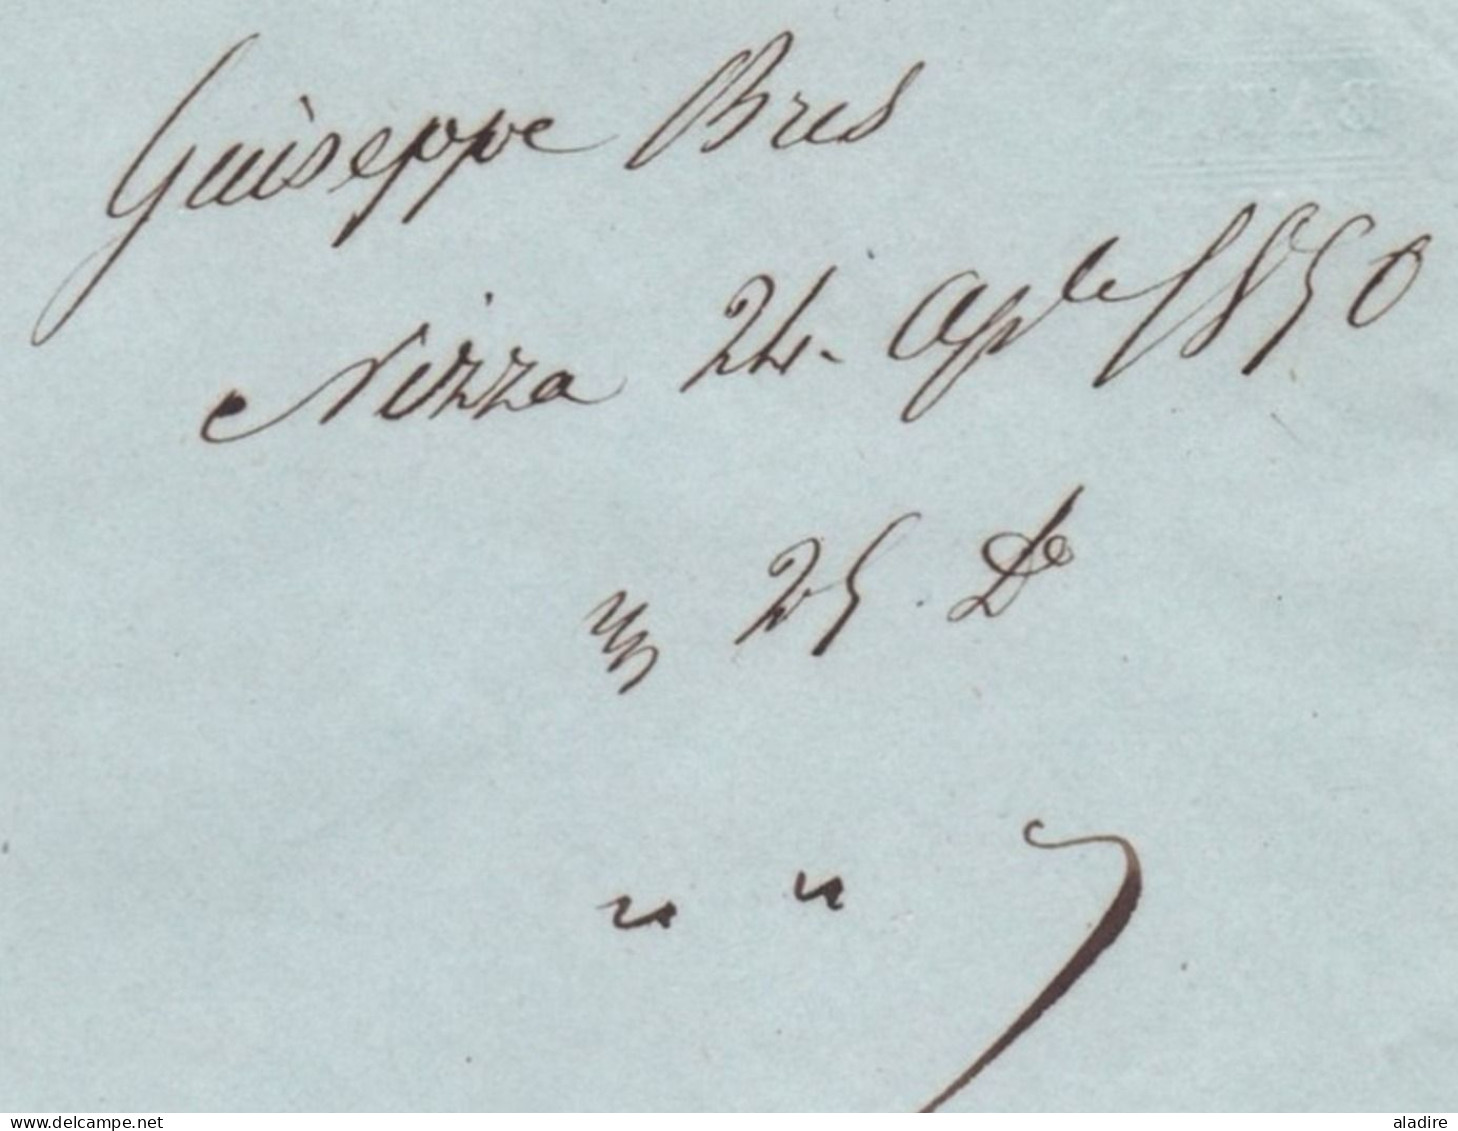 Giuseppe Bres
BATH
Nizza 24. Aple 1850
25 Do
" "
delcampe.net
aladire